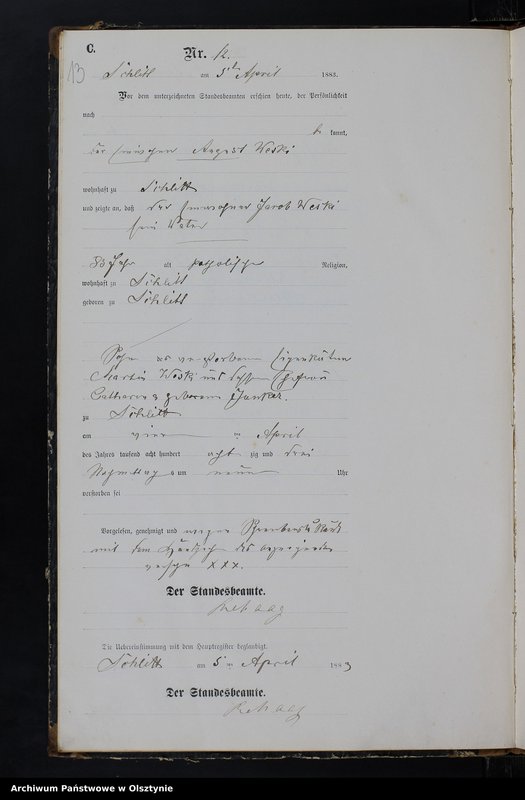 C.
13
Nr. 12.
Schlitt am 5ten April 1883.
Vor dem unterzeichneten Standesbeamten erschien heute, der Persönlichkeit
nach
kannt,
der August Weski
wohnhaft zu Schlitt
und zeigte an, daß der Jacob Weski
sein Vater
83 Jahr alt katholischer Religion,
wohnhaft zu Schlitt
geboren zu Schlitt
Sohn des verstorbenen Eigenkätner
Martin Weski und dessen Ehefrau
Catharina geborene Junker.
zu Schlitt
am vier ten April
des Jahres tausend acht hundert acht zig und drei
Nachmittags um neun Uhr
verstorben sei
Vorgelesen, genehmigt und wegen
mit dem Handzeichen des
versehn XXX.
Der Standesbeamte.
Rehaag
Die Uebereinstimmung mit dem Hauptregister beglaubigt.
Schlitt am 5 ten April 1883
Der Standesbeamte.
Rehaag
Archiwum Państwowe w Olsztynie